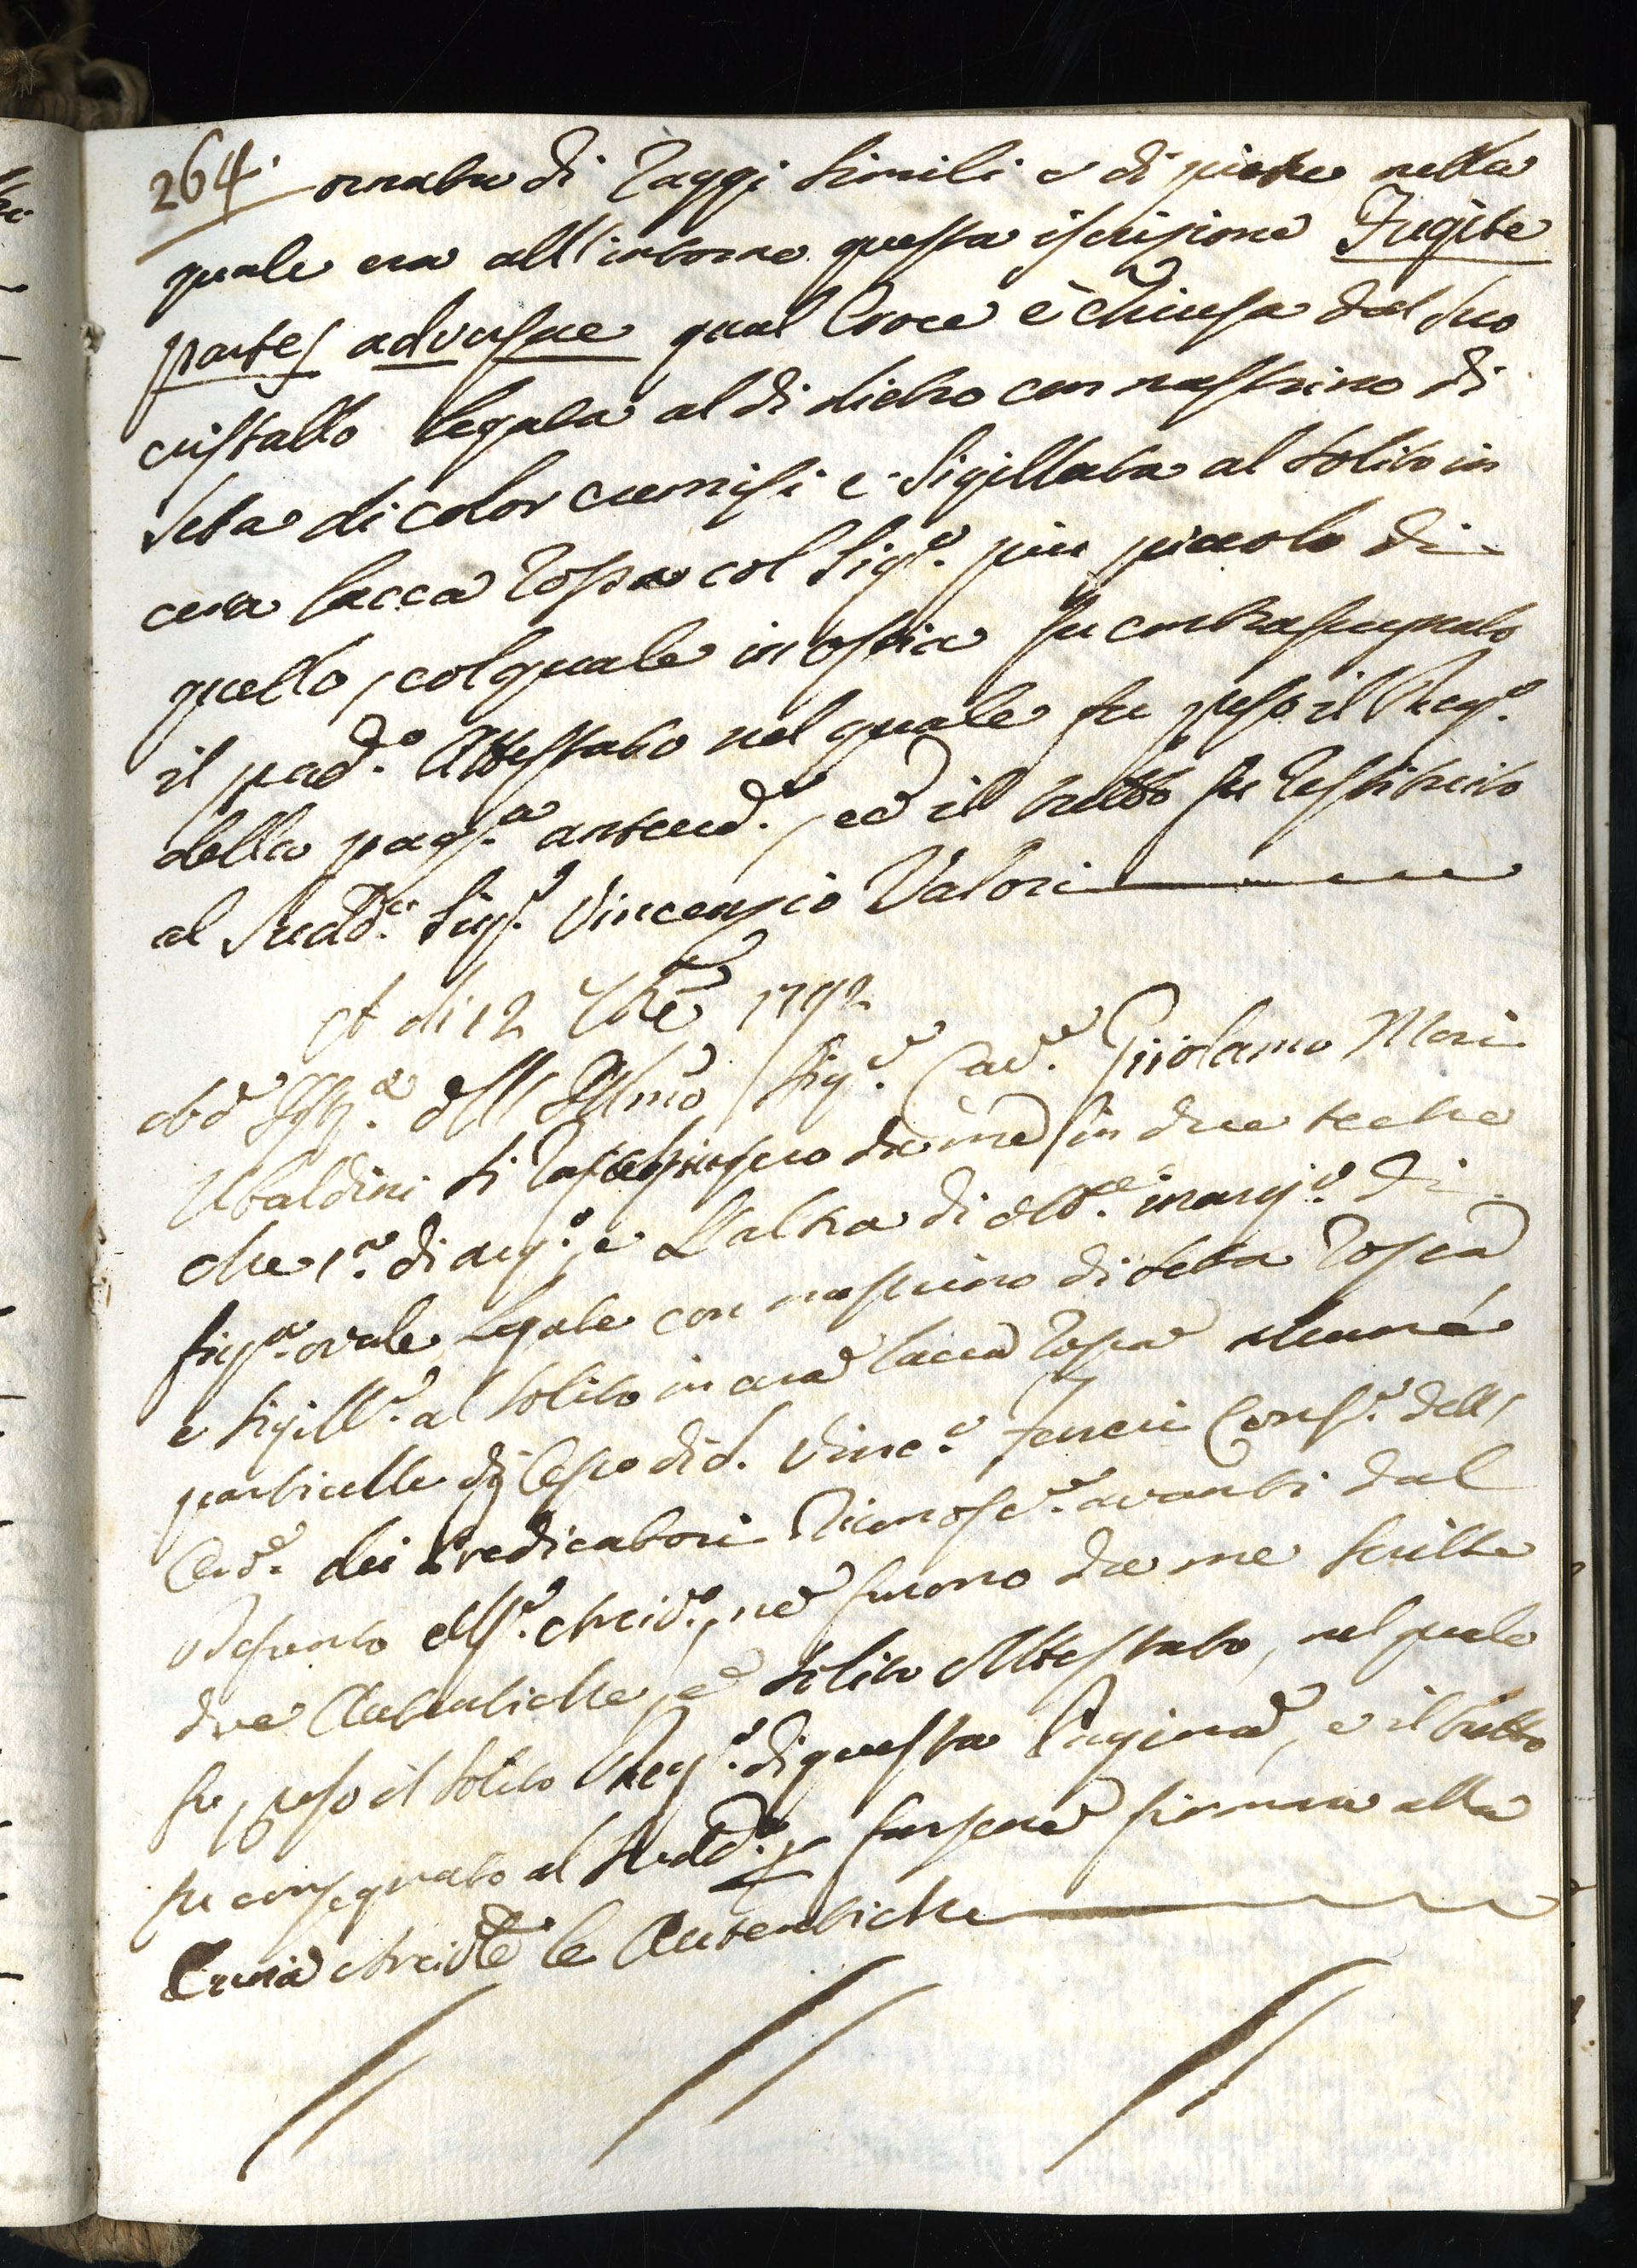 264. ornata di Raggi simili e di pietre nella
quale era all'intorno questa iscrizione Fugite
partes adversae qual Croce è chiusa dal suo
cristallo legata al di dietro con nastrino di
seta di color cremisi e sigillata al solito in
cera lacca rossa col Sig.o più piccolo di
quello, col quale in ostia fu contrassegnato
il pred.o Attestato nel quale fu preso il Reg.o
della pag.a anteced.e, ed il tutto fu restituito
al Sudd.o Sig.r Vincenzio Valori
A di 12 1792
ad Istz.a dell Illmo Sig.r Cav.e Girolamo Mori
Ubaldini si da me in due teche
che 1.a di arg.o, e L'altra di ott.e inarg.o di
fig.a ovale legate con nastrino di seta rossa
e sigill.e al solito in cera lacca rossa alcune
particelle di S. Vinc.o Ferreri Conf.e dell
Ord.e dei Predicatori Riconosc.e avanti dal
Defunto Arciv.o, ne furono da me scritte
due Autentiche, e solito Attestato, nel quale
fu preso il solito Reg.o di questa Pagina, e il tutto
fu consegnato al Sudd.o p farsene firmare alla
Curia Arcivle le Autentiche